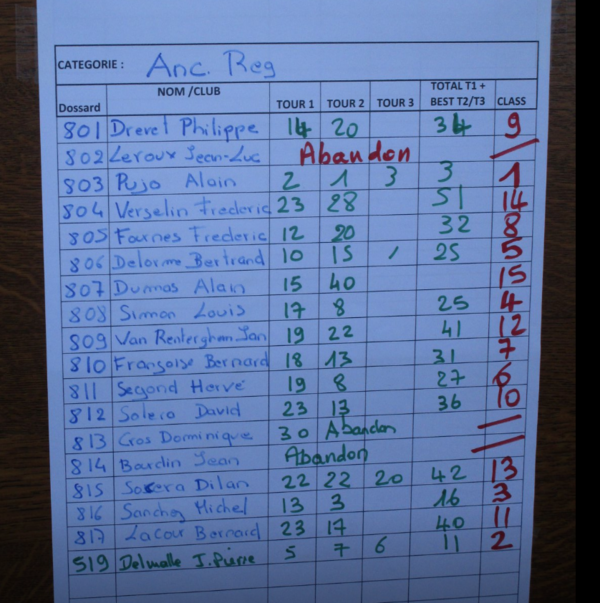 CATEGORIE : Anc. Reg
Dossard NOM /CLUB TOUR 1 TOUR 2 TOUR 3 TOTAL T1 + BEST T2/T3 CLASS
801 Drevet Philippe 14 20 34 9
802 Leroux Jean-Luc Abandon
803 Pujo Alain 2 1 3 3 1
804 Verselin Frederic 23 28 51 14
805 Fournes Frederic 12 20 32 8
806 Delorme Bertrand 10 15 1 25 5
807 Dumas Alain 15 40 15
808 Simon Louis 17 8 25 4
809 Van Renterghem Jan 19 22 41 12
810 Françoise Bernard 18 13 31 7
811 Segond Hervé 19 8 27 6
812 Solero David 23 13 36 10
813 Gros Dominique 30 Abandon
814 Bourdin Jean Abandon
815 Dilan 22 22 20 42 13
816 Sanchez Michel 13 3 16 3
817 Lacour Bernard 23 17 40 11
519 Delmalle J.Pierre 5 7 6 11 2